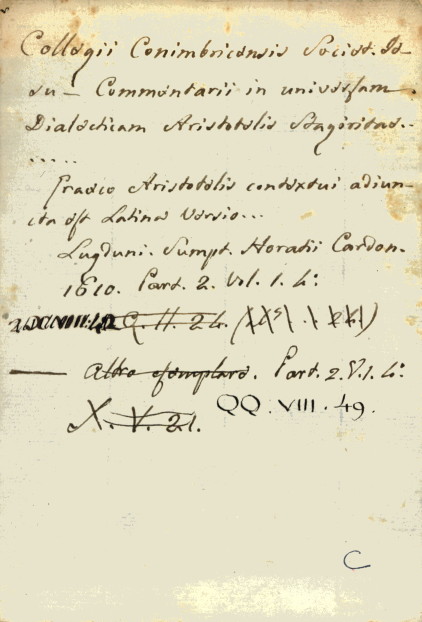 Collegii Conimbricensis Societ. Ie-
su – Commentarii in universam
Dialecticam Aristotelis Stagiritae..
.....
Graeco Aristotelis contextui adiun-
cta est Latina versio...
Lugduni. Sumpt. Horatii Cardon.
1610. Part. 2. Vol. 1. 4:
Q. H. 24.
— Altro esemplare. Part. 2. V. 1. 4:
X. V. 21. QQ. VIII. 49.
C